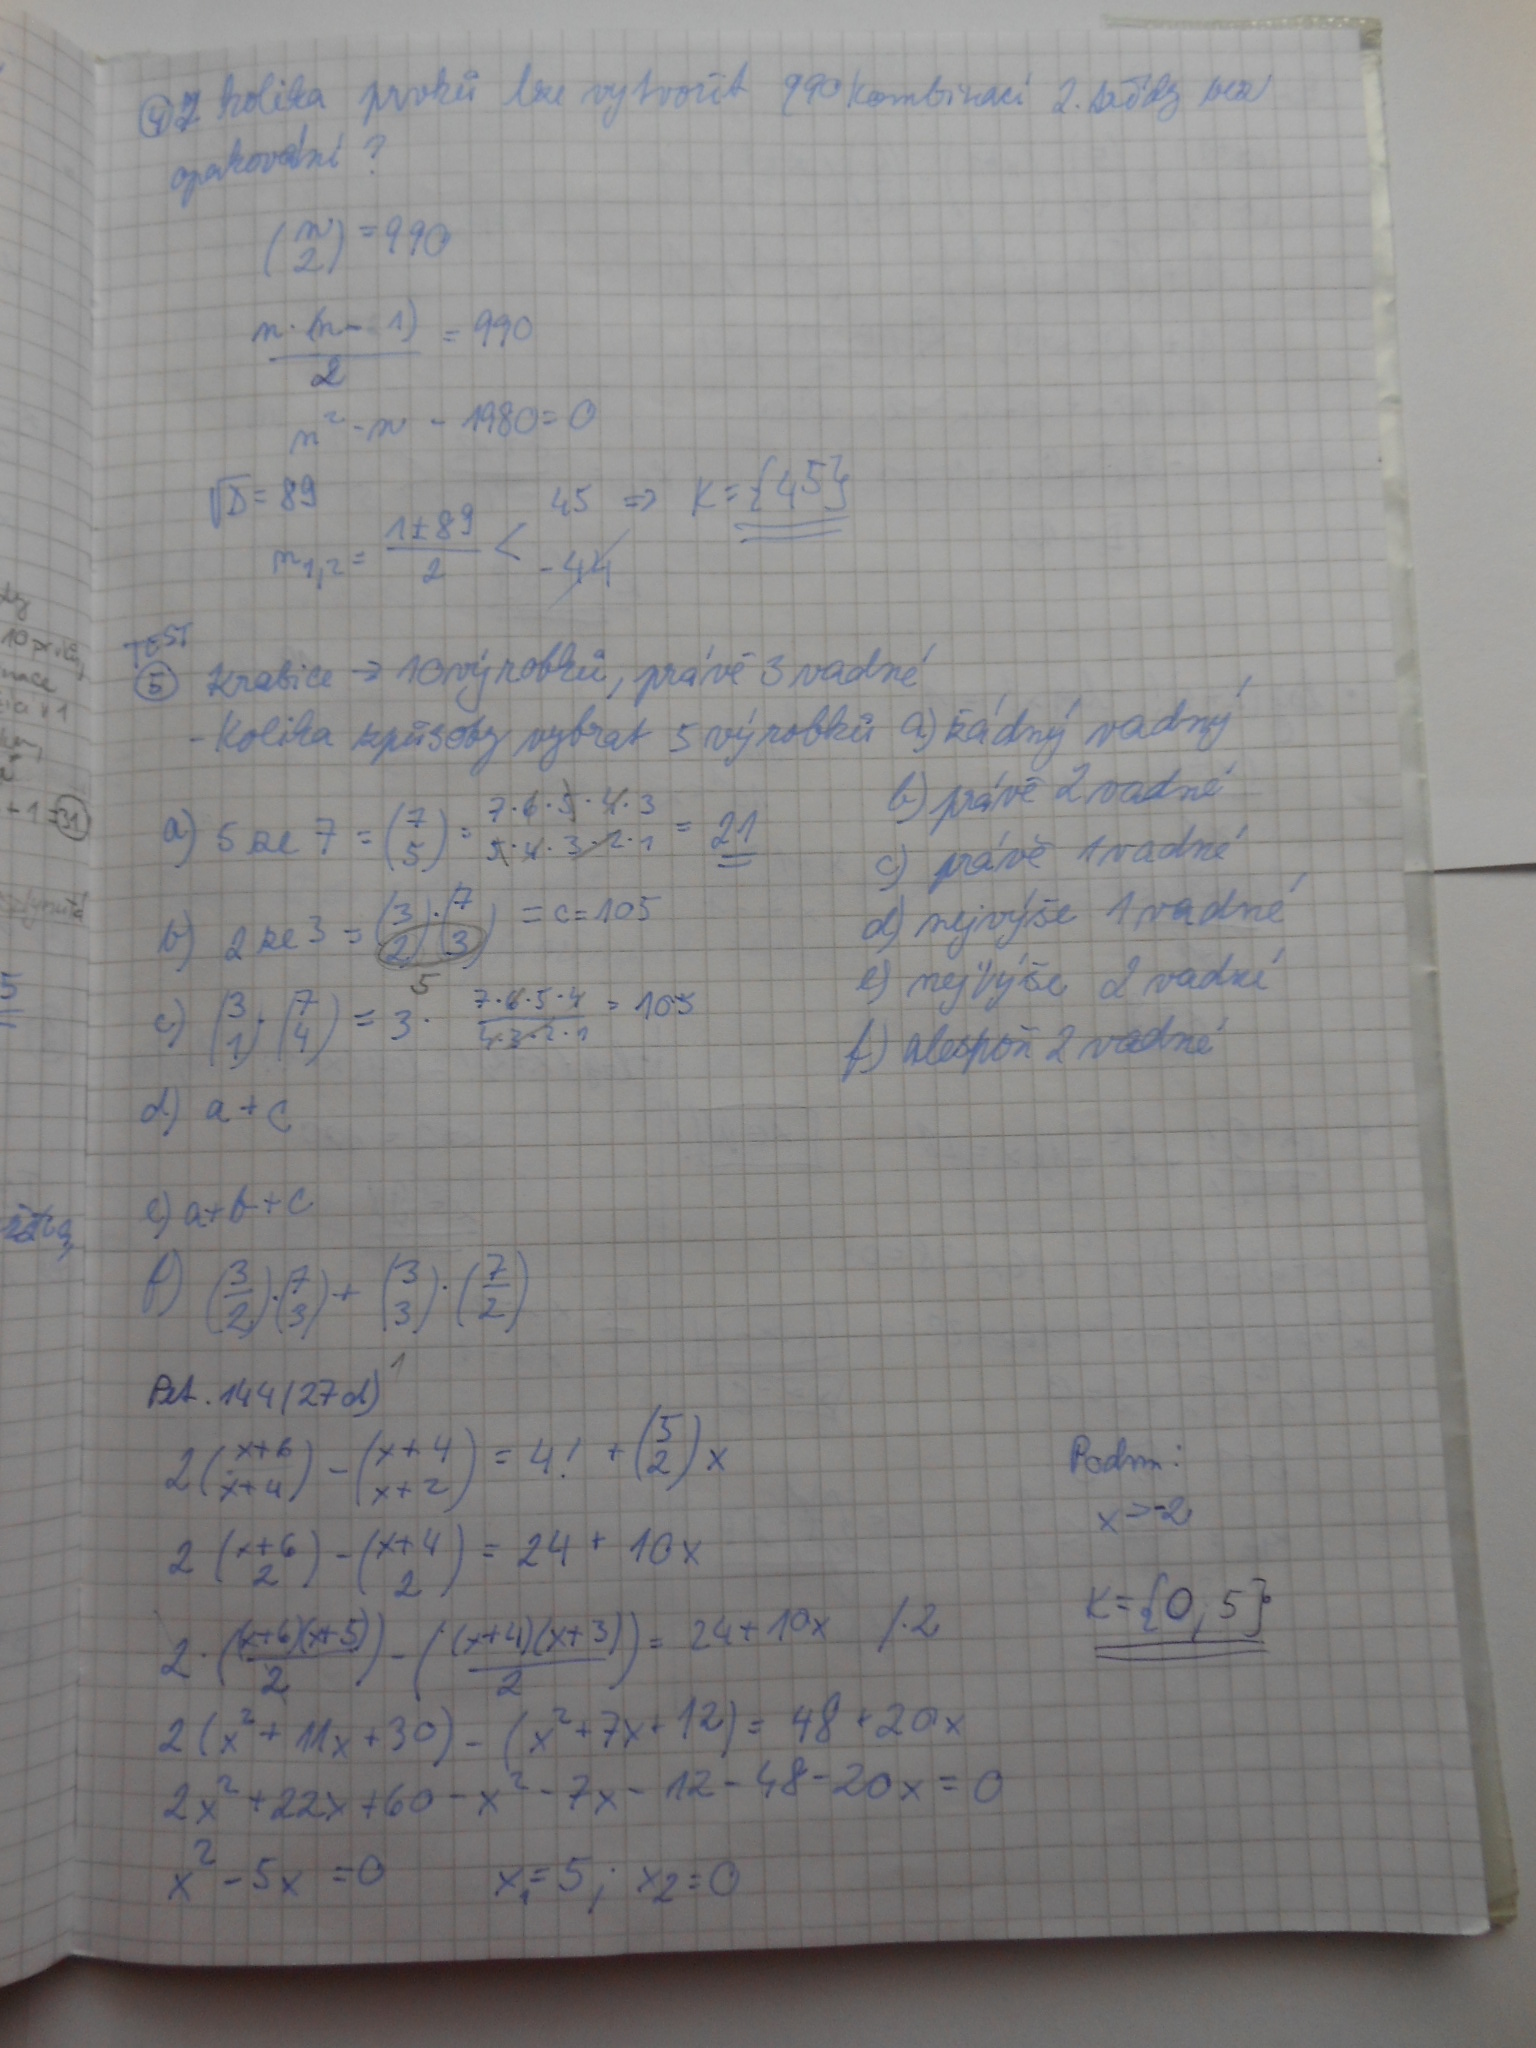 ④ Z kolika prvků lze vytvořit 990 kombinací 2. třídy bez
opakování?
(n 2) = 990
n·(n-1)/2 = 990
n² - n - 1980 = 0
√D = 89
n1,2 = (1±89)/2 < 45 => K = {45}
-44
TEST
⑤ Krabice → 10 výrobků, právě 3 vadné
- Kolika způsoby vybrat 5 výrobků a) žádný vadný
b) právě 2 vadné
c) právě 1 vadné
d) nejvýše 1 vadné
e) nejvýše 2 vadné
f) alespoň 2 vadné
a) 5 ze 7 = (7 5) = 7·6·5·4·3/5·4·3·2·1 = 21
b) 2 ze 3 = (3 2)·(7 3) = c = 105
5
c) (3 1)·(7 4) = 3· 7·6·5·4/4·3·2·1 = 105
d) a + c
e) a+b+c
f) (3 2)·(7 3) + (3 3)·(7 2)
Pet. 144 (27d)
2(x+6 x+4) - (x+4 x+2) = 4! + (5 2)x
2(x+6 2) - (x+4 2) = 24 + 10x
2·((x+6)(x+5)/2) - ((x+4)(x+3)/2) = 24+10x /·2
2(x²+11x+30) - (x²+7x+12) = 48+20x
2x²+22x+60-x²-7x-12-48-20x=0
x² - 5x = 0 x₁=5; x₂=0
Podm:
x>-2
K={0,5}
+1=31
5